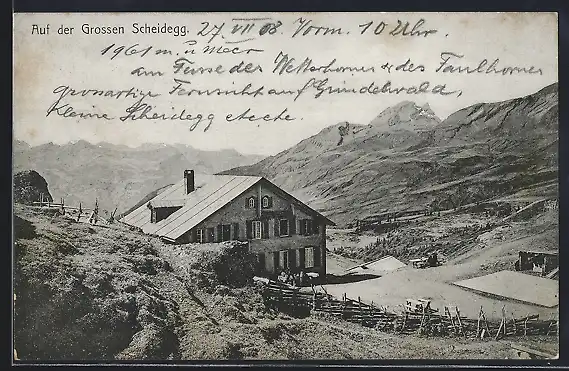 Auf der Grossen Scheidegg. 27. VII 08 Vorm. 10 Uhr.
1961 m. ü Meer
am Fusse des Wetterhorns & des Faulhorns
grossartige Fernsicht auf Grindelwald,
Kleine Scheidegg etcetc.